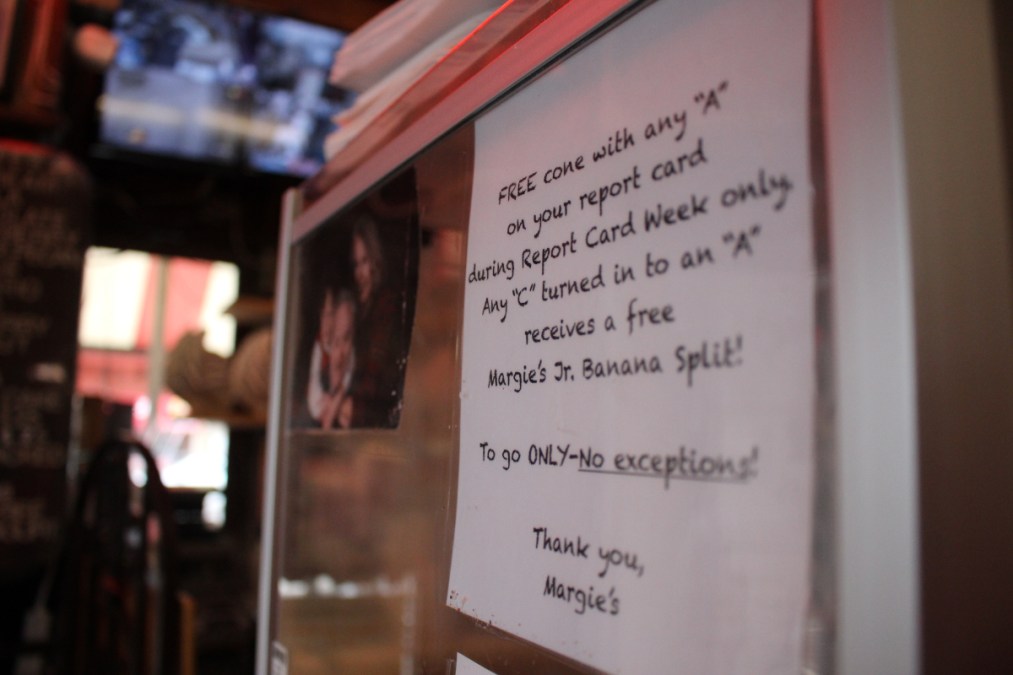 FREE cone with any "A"
on your report card
during Report Card Week only.
Any "C" turned in to an "A"
receives a free
Margie's Jr. Banana Split!
To go ONLY-No exceptions!
Thank you,
Margie's